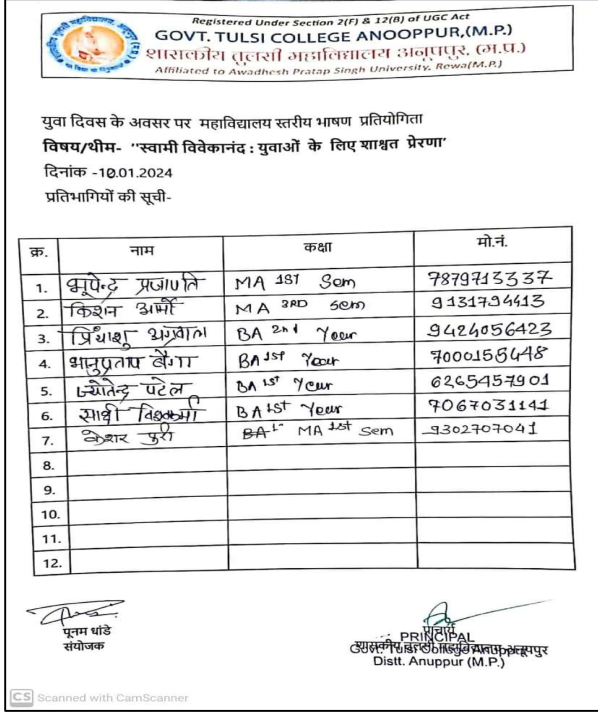 Registered Under Section 2(F) & 12(B) of UGC Act
GOVT. TULSI COLLEGE ANOOPPUR,(M.P.)
शासकीय तुलसी महाविद्यालय अनूपपुर, (म.प्र.)
Affiliated to Awadhesh Pratap Singh University, Rewa(M.P.)
युवा दिवस के अवसर पर महाविद्यालय स्तरीय भाषण प्रतियोगिता
विषय/थीम- ''स्वामी विवेकानंद : युवाओं के लिए शाश्वत प्रेरणा'
दिनांक -10.01.2024
प्रतिभागियों की सूची-
क्र. नाम कक्षा मो.नं.
1. भूपेन्द्र प्रजापति MA 1ST Sem 7879713337
2. किशन आर्मो MA 3RD Sem 9131794413
3. प्रियांशु अग्रवाल BA 2nd Year 9424056423
4. भानुप्रताप बैगा BA 1st Year 7000155448
5. ज्योतेन्द्र पटेल BA 1st Year 6265457901
6. साक्षी विश्वकर्मा BA 1st Year 7067031141
7. केशर पुरी BA 1st MA 1st Sem 9302707041
8.
9.
10.
11.
12.
पूनम धांडे
संयोजक
प्राचार्य
PRINCIPAL
शासकीय तुलसी महाविद्यालय अनूपपुर
Govt. Tulsi College Anuppur
Distt. Anuppur (M.P.)
CS Scanned with CamScanner